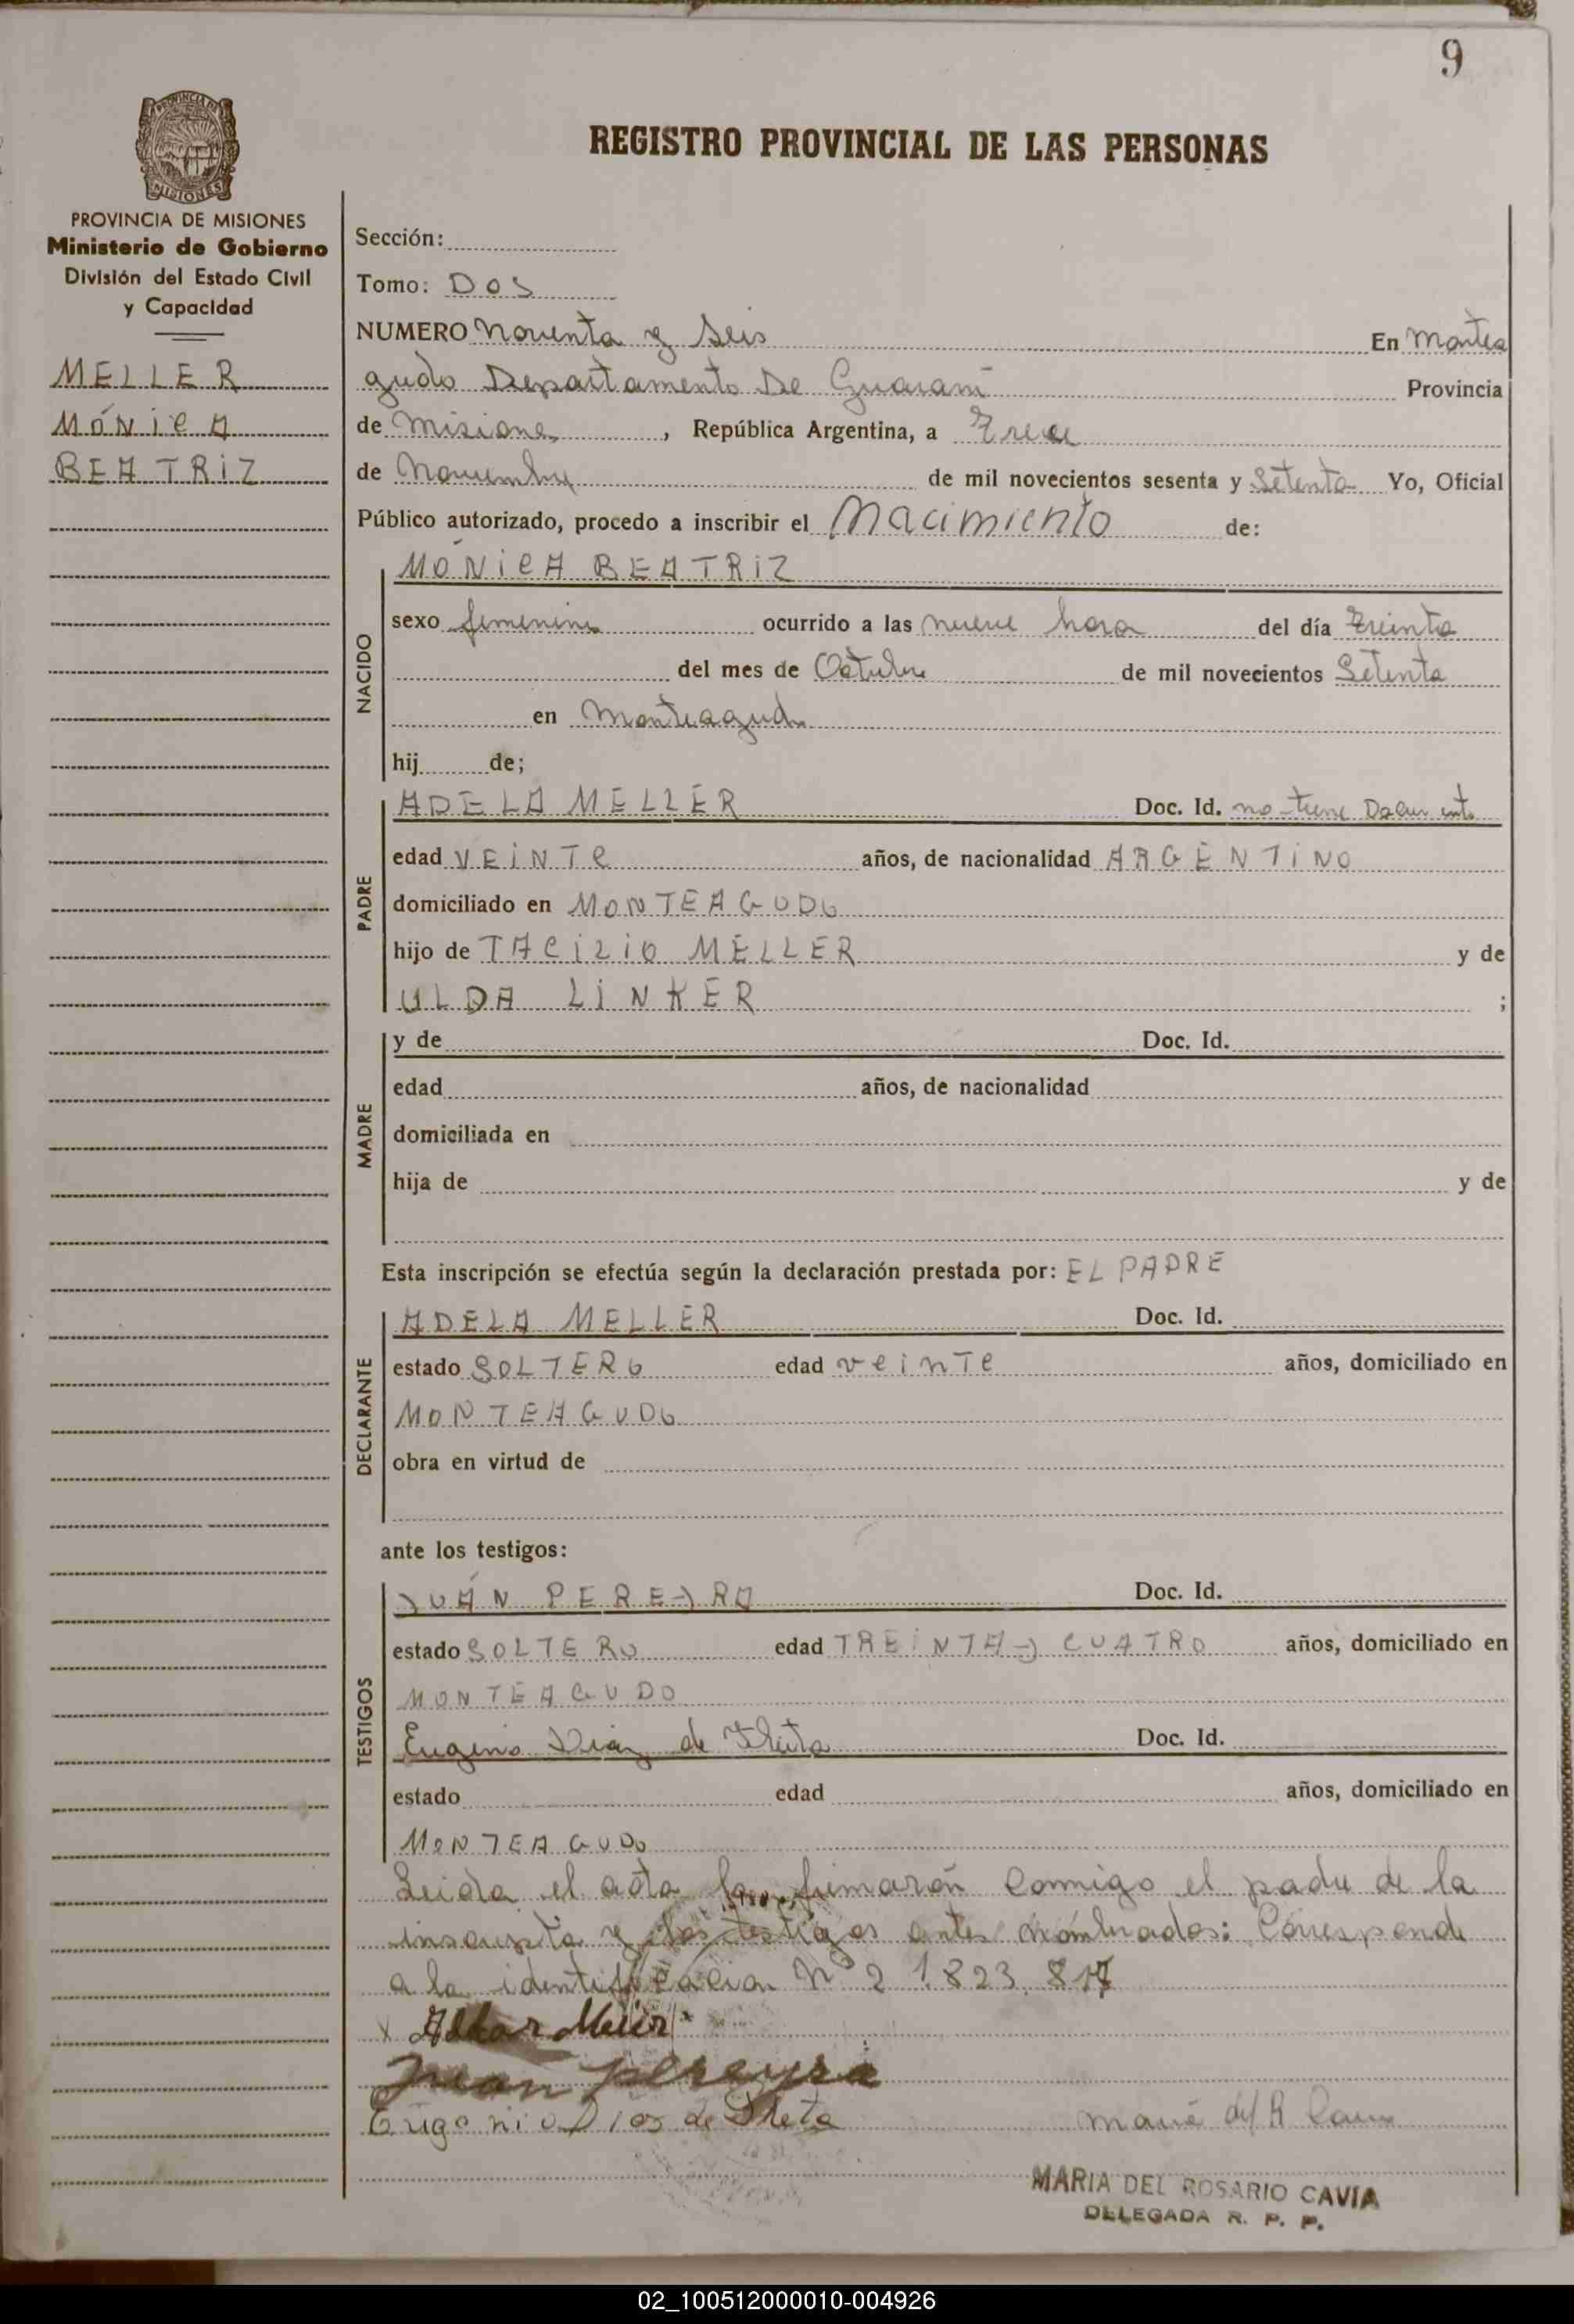 9
PROVINCIA DE MISIONES
REGISTRO PROVINCIAL DE LAS PERSONAS
PROVINCIA DE MISIONES
Ministerio de Gobierno
División del Estado Civil
y Capacidad
MELLER
MÓNICA
BEATRIZ
Sección:
Tomo: DOS
NUMERO Noventa y Seis En Montea
gudo Departamento De Guaraní Provincia
de Misiones, República Argentina, a Trece
de Noviembre de mil novecientos sesenta y Setenta Yo, Oficial
Público autorizado, procedo a inscribir el Nacimiento de:
NACIDO
MÓNICA BEATRIZ
sexo femenino ocurrido a las nueve hora del día Treinta
del mes de Octubre de mil novecientos Setenta
en Monteagudo
hij de;
PADRE
ADELA MELLER Doc. Id. no tiene Documento
edad VEINTE años, de nacionalidad ARGENTINO
domiciliado en MONTEAGUDO
hijo de TACILIO MELLER y de
ULDA LINKER ;
MADRE
y de Doc. Id.
edad años, de nacionalidad
domiciliada en
hija de y de
Esta inscripción se efectúa según la declaración prestada por: EL PADRE
DECLARANTE
ADELA MELLER Doc. Id.
estado SOLTERO edad VEINTE años, domiciliado en
MONTEAGUDO
obra en virtud de
ante los testigos:
TESTIGOS
JUÁN PEREYRA Doc. Id.
estado SOLTERO edad TREINTA Y CUATRO años, domiciliado en
MONTEAGUDO
Eugenio de Doc. Id.
estado edad años, domiciliado en
MONTEAGUDO
Leida el acta la firmarón conmigo el padre de la
inscripta y los testigos antes nombrados: Corresponde
a la identificacion Nº 21.823.817
x
Juan Pereyra
Eugenio de
Maria del R Cavia
MARIA DEL ROSARIO CAVIA
DELEGADA R. P. P.
02_100512000010-004926